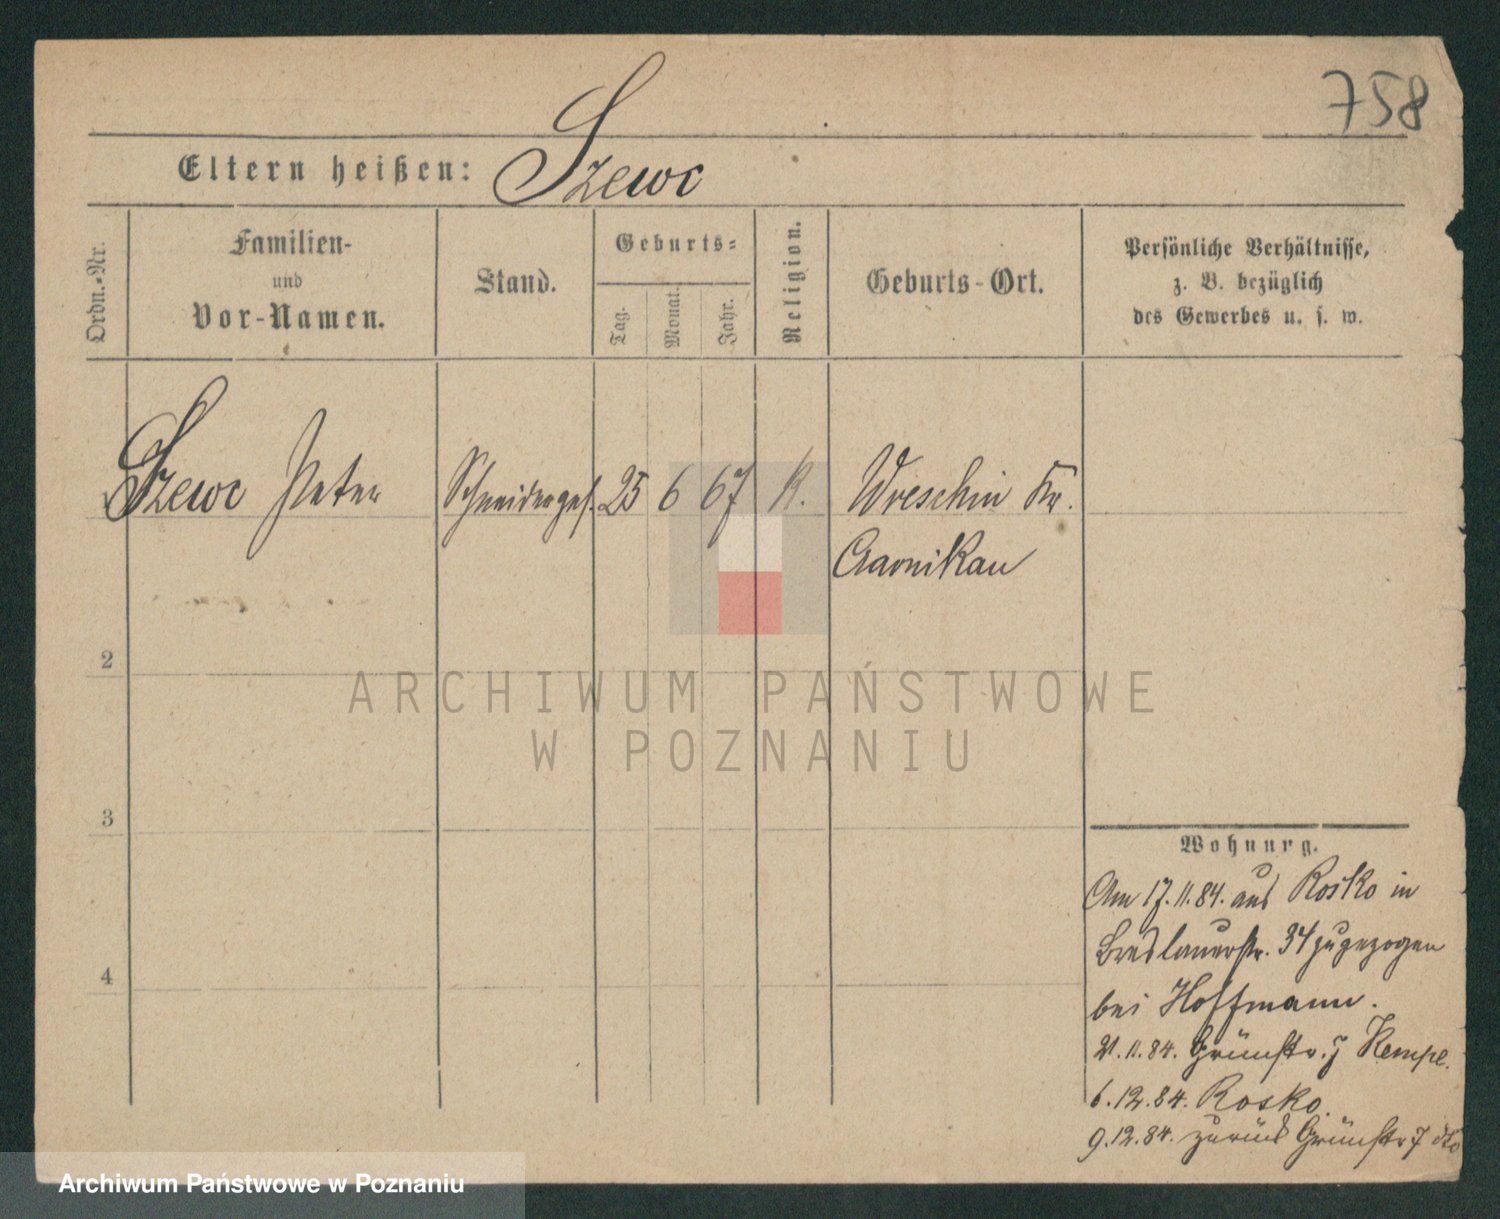 758
Eltern heißen: Szewc
Ordn.-Nr.
Familien-
und
Vor-Namen.
Stand.
Geburts-
Tag.
Monat.
Jahr.
Religion.
Geburts-Ort.
Persönliche Verhältnisse,
z. B. bezüglich
des Gewerbes u. s. w.
Szewc Peter Schneiderges. 25 6 67 K. Wreschin Kr.
Czarnikau
2
3
4
ARCHIWUM PAŃSTWOWE
W POZNANIU
Wohnung.
Am 17.11.84. aus Rosko in
Breslauerstr. 34 zugezogen
bei Hoffmann.
21.11.84. Grünstr. 7 Kempe.
6.12.84. Rosko.
9.12.84. zurück Grünstr 7 dto
Archiwum Państwowe w Poznaniu